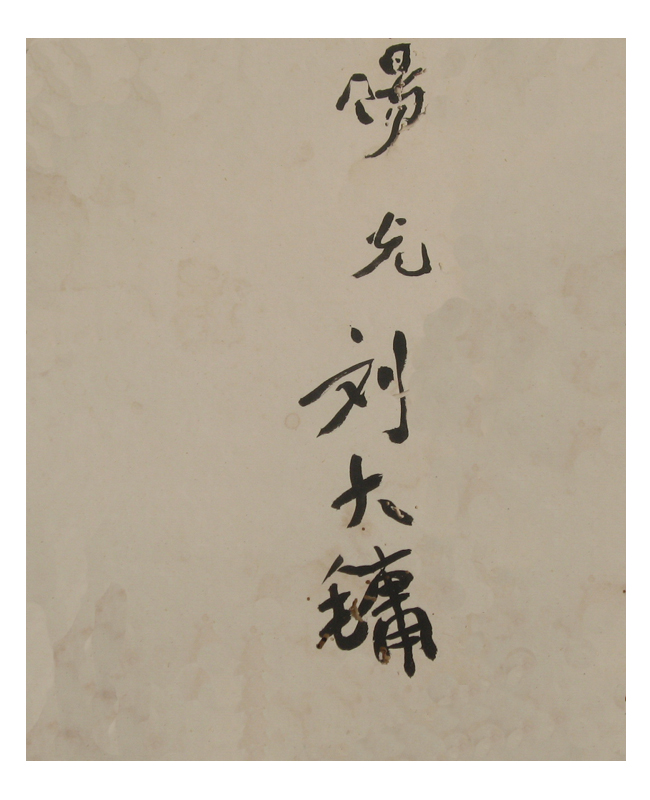 阳光刘大镛